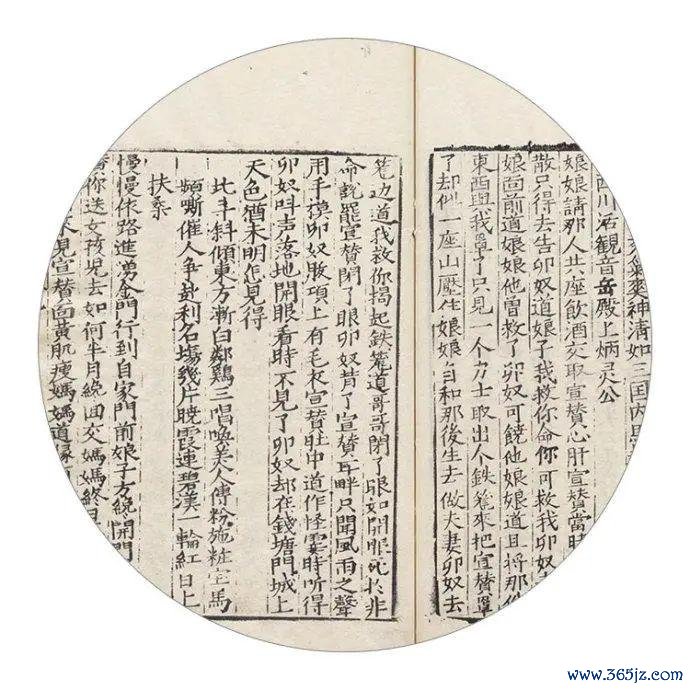 氣爽神清如三国内
西川活觀音岳殿上炳灵公
娘娘請那人共座飲酒交取宣贊心肝宣贊當時
散只得去告卯奴道娘子我救你命你可救我卯奴
娘面前道娘娘他曾救了卯奴可饒他娘娘道且将那
東西與我罩了只見一个力士取出个鉄篭來把宣贊罩
了却似一座山壓住娘娘自和那後生去做夫妻卯奴去
篭边道我救你揭起鉄篭道哥哥閉了眼如開眼死於非
命說罷宣贊閉了眼卯奴背了宣贊耳畔只聞風雨之聲
用手摸卯奴脖項上有毛衣宣贊肚中道作怪霎時所得
卯奴呌声落地開眼看時不見了卯奴却在錢塘門城上
天色猶未明怎見得
北斗斜傾東方漸白鄰鷄三唱喚美人傅粉施粧宝馬
頻嘶催人争赴利名塲幾片曉霞連碧漢一輪紅日上
扶桒
慢慢依路進湧金門行到自家門前娘子方纔開門
贊你送女孩児去如何半月纔回交媽媽終日
不見宣贊面黄肌瘦媽媽道緣
www.365jz.com